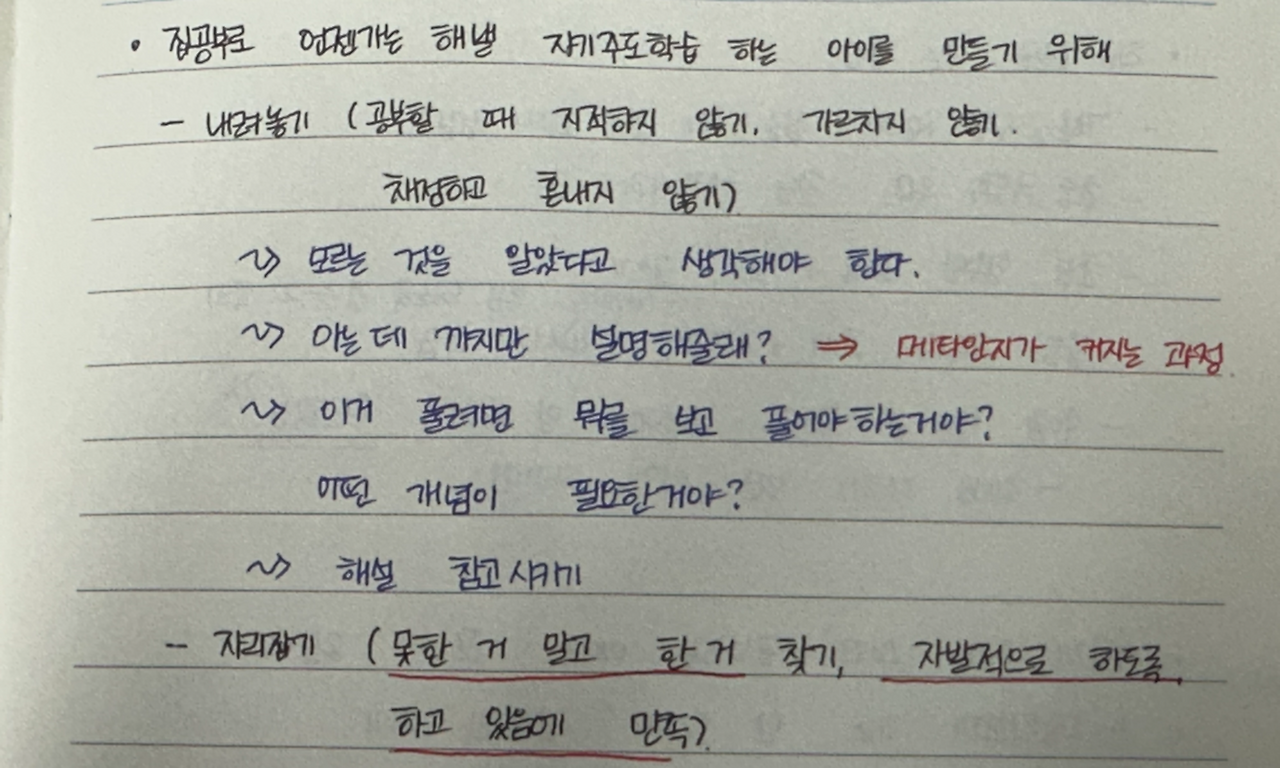 • 집공부로 언젠가는 해낼 자기주도학습 하는 아이를 만들기 위해
- 내려놓기 (공부할 때 지적하지 않기. 가르치지 않기.
채점하고 혼내지 않기)
~> 모르는 것을 알았다고 생각해야 한다.
~> 아는데 까지만 설명해줄래? ⇒ 메타인지가 커지는 과정.
~> 이거 풀려면 뭐를 보고 풀어야 하는거야?
어떤 개념이 필요한거야?
~> 해설 참고시키기
- 자리잡기 (못한 거 말고 한 거 찾기, 자발적으로 하도록,
하고 있음에 만족).